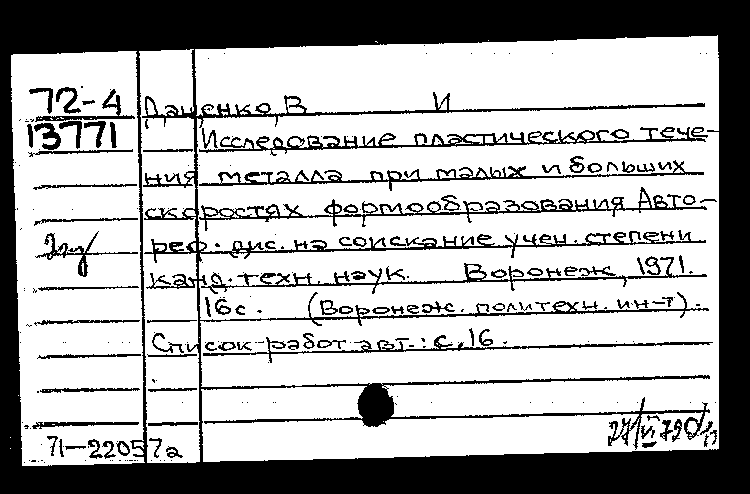 72-4 Даценко, В И
13771 Исследование пластического тече-
ния металла при малых и больших
скоростях формообразования Авто-
реф. дис. на соискание учен. степени
канд. техн. наук. Воронеж, 1971.
16с. (Воронеж. политехн. ин-т).
Список работ авт.: с. 16.
71-22057а